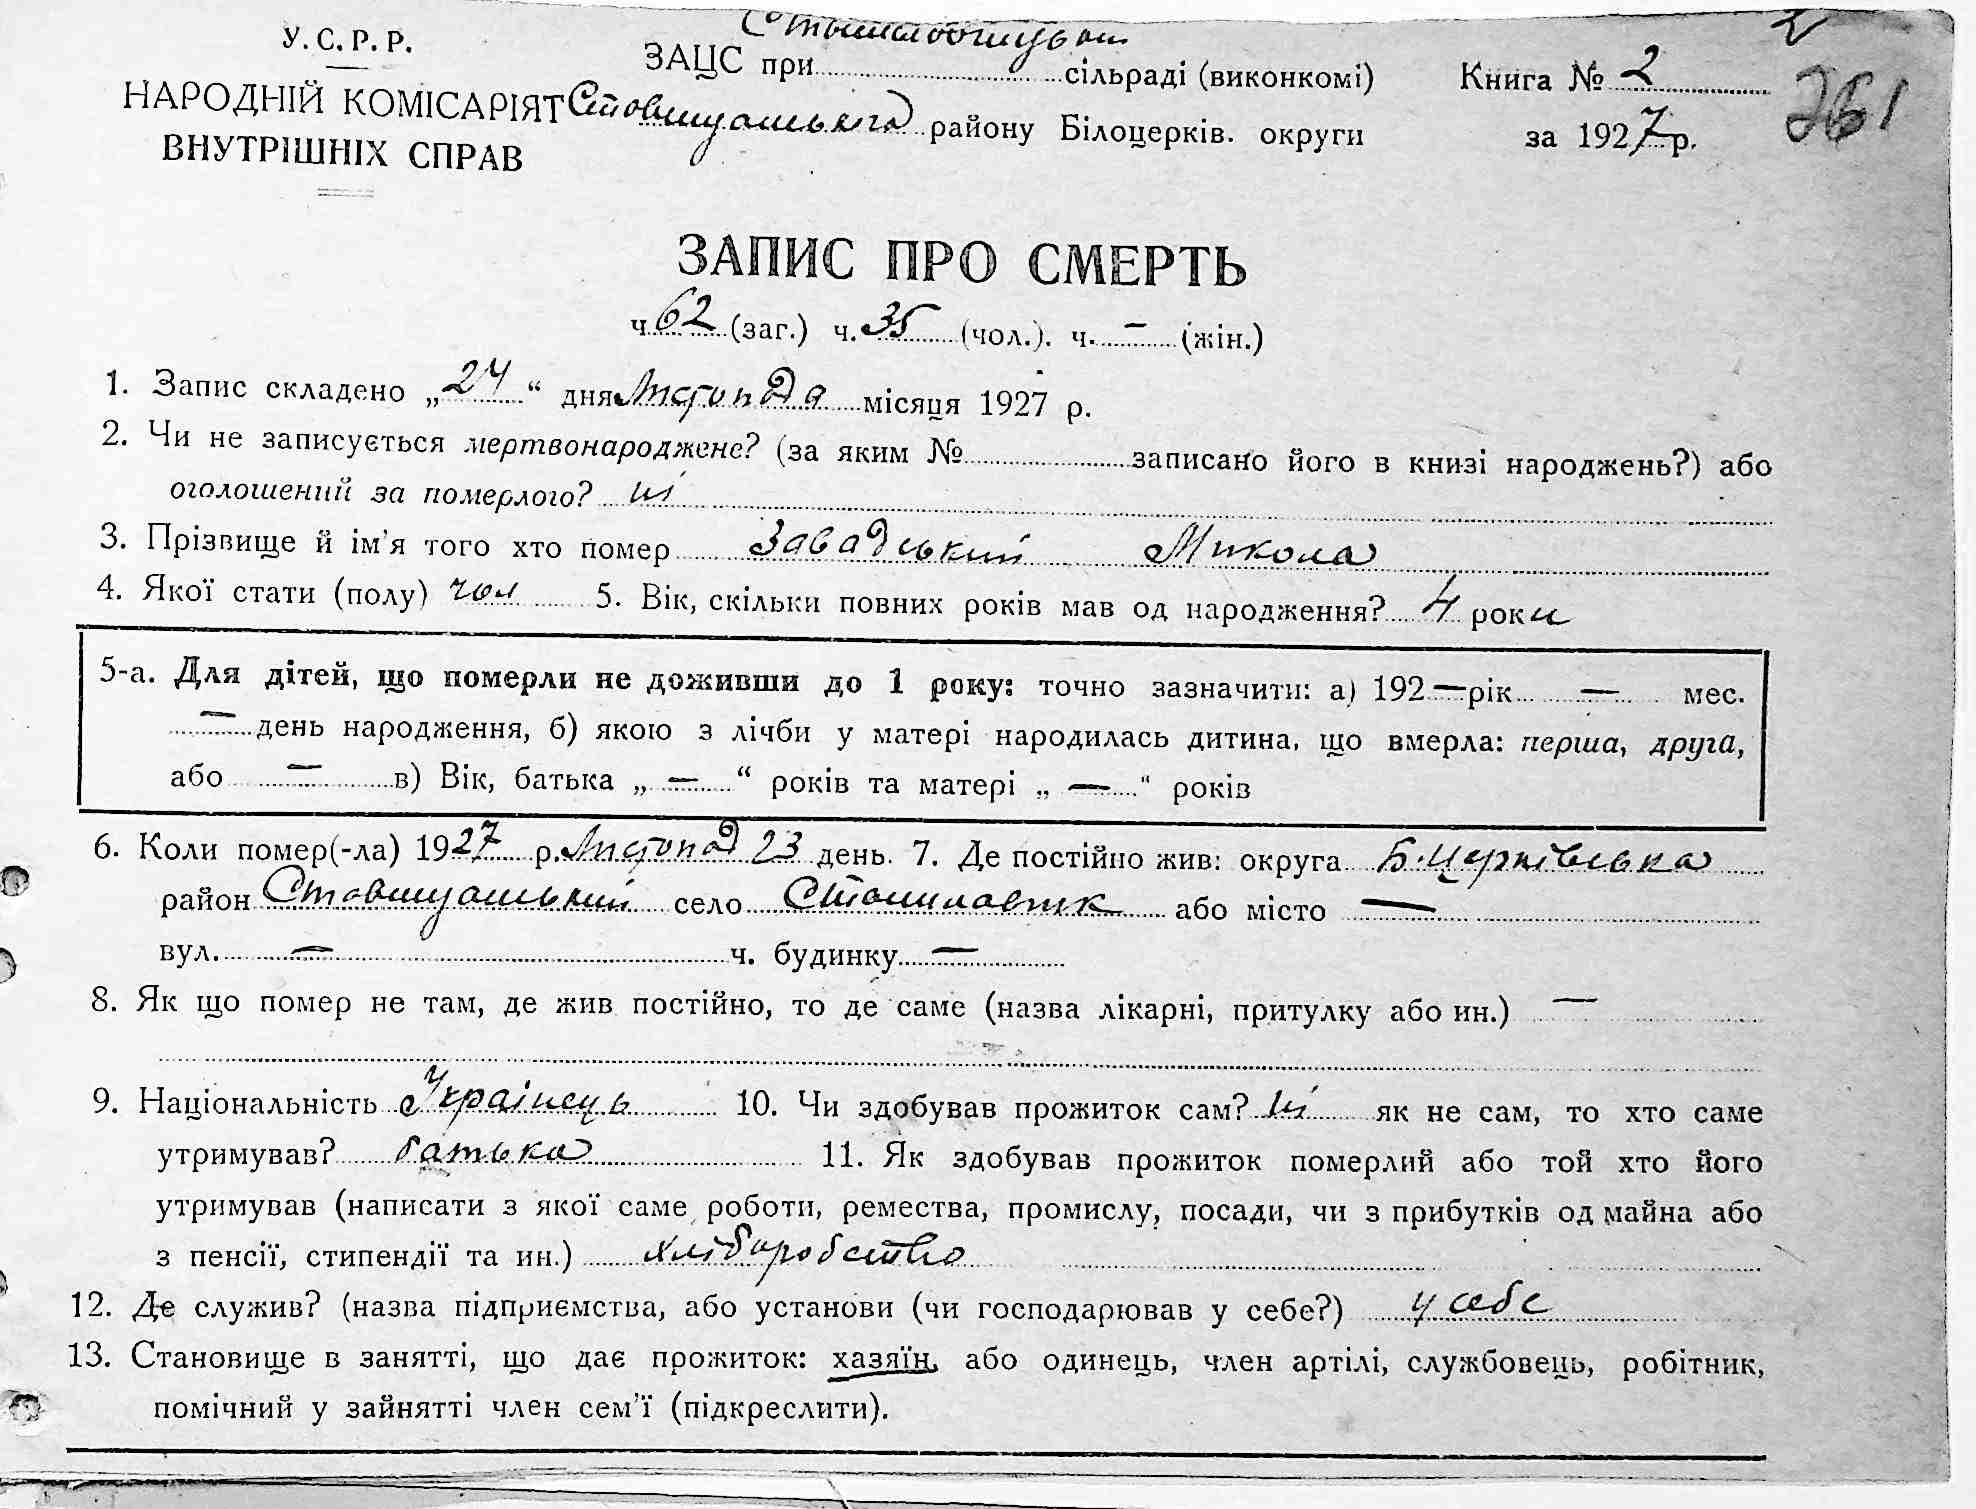 У. С. Р. Р.
НАРОДНІЙ КОМІСАРІЯТ
ВНУТРІШНІХ СПРАВ
ЗАЦС при сільраді (виконкомі)
району Білоцерків. округи
Книга № 2
за 1927 р.
261
ЗАПИС ПРО СМЕРТЬ
ч. 62 (заг.) ч. 35 (чол.). ч. — (жін.)
1. Запис складено „24“ дня Листопада місяця 1927 р.
2. Чи не записується мертвонароджене? (за яким № записано його в книзі народжень?) або
оголошений за померлого? ні
3. Прізвище й ім’я того хто помер Завадський Микола
4. Якої стати (полу) чол 5. Вік, скільки повних років мав од народження? 4 роки
5-а. Для дітей, що померли не доживши до 1 року: точно зазначити: а) 192 — рік — мес.
— день народження, б) якою з лічби у матері народилась дитина, що вмерла: перша, друга,
або — в) Вік, батька „ — “ років та матері „ — “ років
6. Коли помер(-ла) 1927 р. Листопад 23 день. 7. Де постійно жив: округа Б-Церківська
район село або місто —
вул. — ч. будинку —
8. Як що помер не там, де жив постійно, то де саме (назва лікарні, притулку або ин.) —
9. Національність Українець 10. Чи здобував прожиток сам? ні як не сам, то хто саме
утримував? батько 11. Як здобував прожиток померлий або той хто його
утримував (написати з якої саме роботи, ремества, промислу, посади, чи з прибутків од майна або
з пенсії, стипендії та ин.) хліборобство
12. Де служив? (назва підприємства, або установи (чи господарював у себе?) у себе
13. Становище в занятті, що дає прожиток: хазяїн, або одинець, член артілі, службовець, робітник,
помічний у зайнятті член сем’ї (підкреслити).